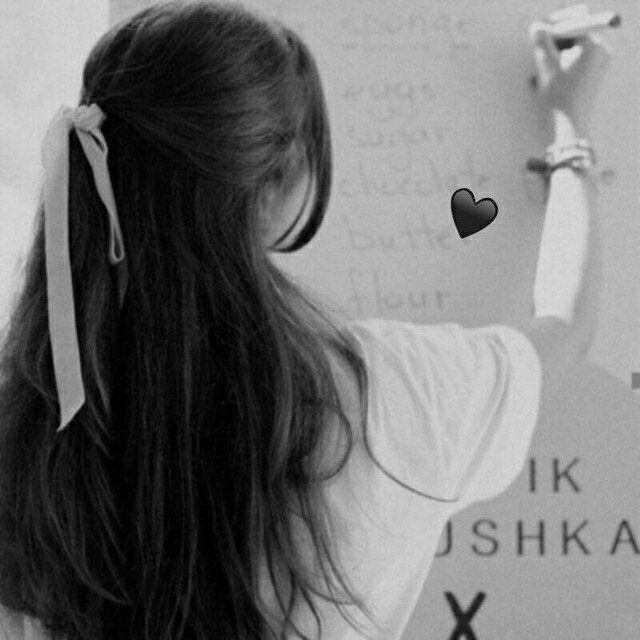 sponge
eggs
sugar
chocolate
butter
flour
IK
USHKA
X